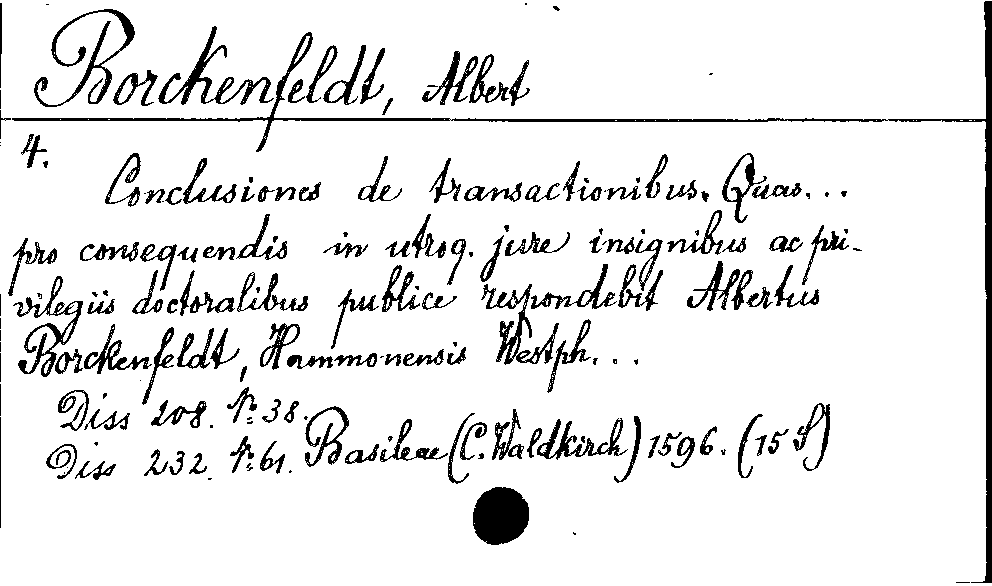 Borckenfeldt, Albert
4.
Conclusiones de transactionibus. Quas...
pro consequendis in utroq. jure insignibus ac pri-
vilegiis doctoralibus publice respondebit Albertus
Borckenfeldt, Hammonensis Westph...
Diss 208. No 38.
Diss 232. No 61. Basileae (C. Waldkirch) 1596. (15 S)